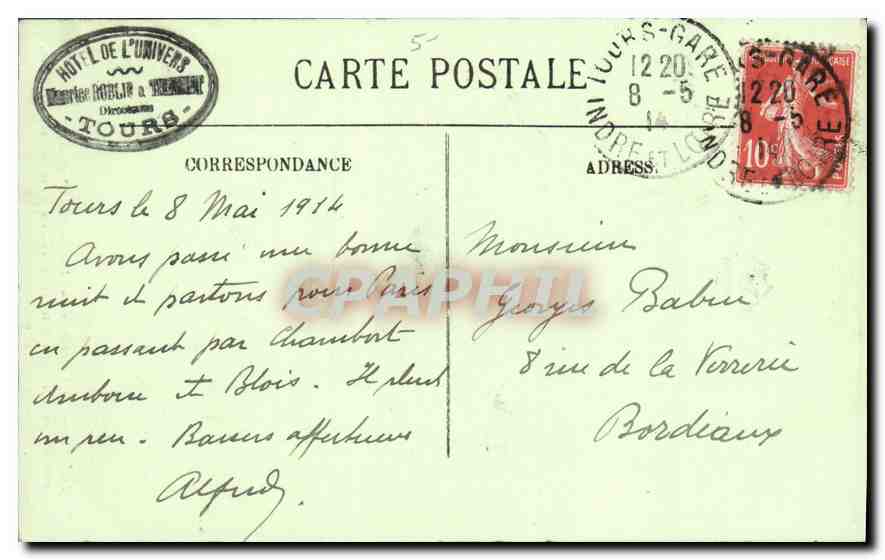 5-
HOTEL DE L'UNIVERS
Maurice ROBLIN &
Directeurs
- TOURS -
CARTE POSTALE
TOURS-GARE
12 20
8 -5
14
INDRE ET LOIRE
RS-GARE
12 20
8 -5
INDRE ET LOIRE
10c
CORRESPONDANCE
ADRESSE
Tours le 8 Mai 1914
Avons passé une bonne
nuit et partons pour Paris
en passant par Chambort
Amboise et Blois. Il pleut
un peu. Baisers affectueux
Alfred
CPAPHIL
Monsieur
Georges Babin
8 rue de la Verrerie
Bordeaux